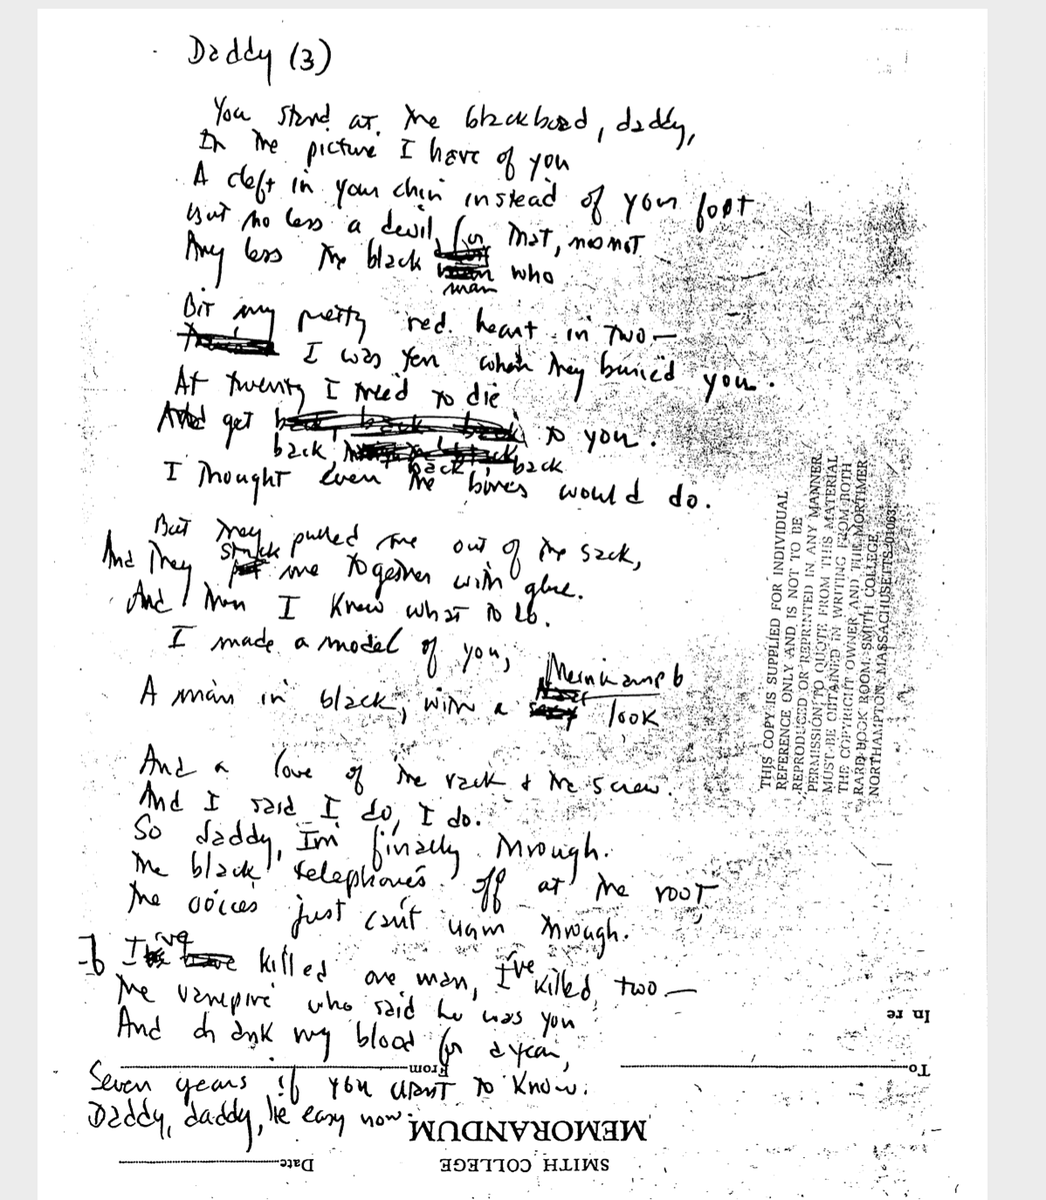 Daddy (3)
You stand at the blackboard, daddy,
In the picture I have of you
A cleft in your chin instead of your foot
But no less a devil for that, no not
Any less the black man who
Bit my pretty red heart in two—
I was ten when they buried you.
At twenty I tried to die
And get back, back, back to you.
I thought even the bones would do.
But they pulled me out of the sack,
And they stuck me together with glue.
And then I knew what to do.
I made a model of you,
A man in black, with a Meinkampf look
And a love of the rack & the screw.
And I said I do, I do.
So daddy, I'm finally through.
The black telephone's off at the root,
The voices just can't worm through.
If I've killed one man, I've killed two—
The vampire who said he was you
And drank my blood for a year,
Seven years if you want to know.
Daddy, daddy, lie easy now.
THIS COPY IS SUPPLIED FOR INDIVIDUAL
REFERENCE ONLY AND IS NOT TO BE
REPRODUCED OR REPRINTED IN ANY MANNER.
PERMISSION TO QUOTE FROM THIS MATERIAL
MUST BE OBTAINED IN WRITING FROM BOTH
THE COPYRIGHT OWNER AND THE MORTIMER
RARE BOOK ROOM, SMITH COLLEGE,
NORTHAMPTON, MASSACHUSETTS 01063
SMITH COLLEGE
Date
MEMORANDUM
To
From
In re